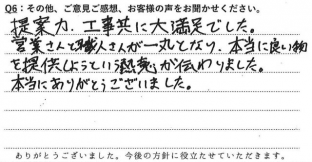 Q6：その他、ご意見ご感想、お客様の声をお聞かせください。
提案力、工事共に大満足でした。
営業さんと職人さんが一丸となり、本当に良い物
を提供しようという熱意が伝わりました。
本当にありがとうございました。
ありがとうございました。今後の方針に役立たせていただきます。